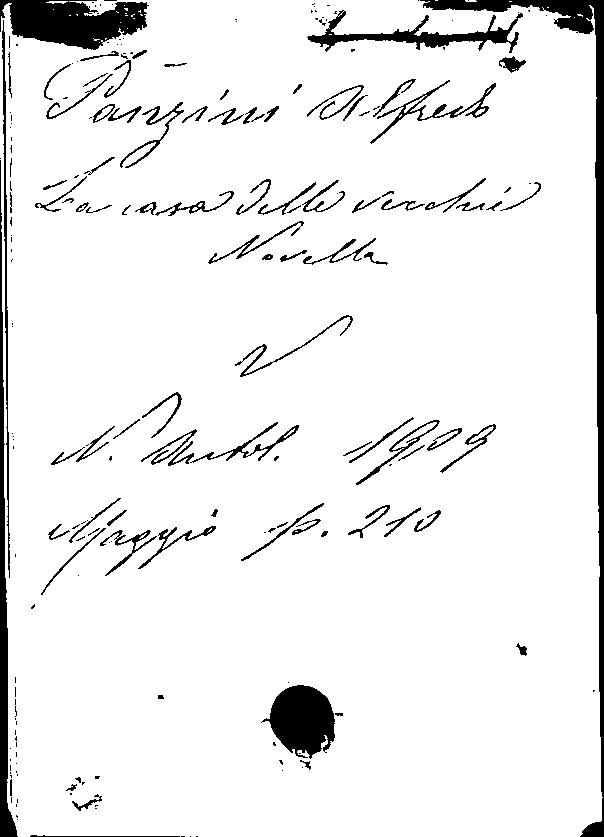 Panzini Alfredo
La casa delle vecchie
Novella
V
N. Antol. 1909
Maggio p. 210